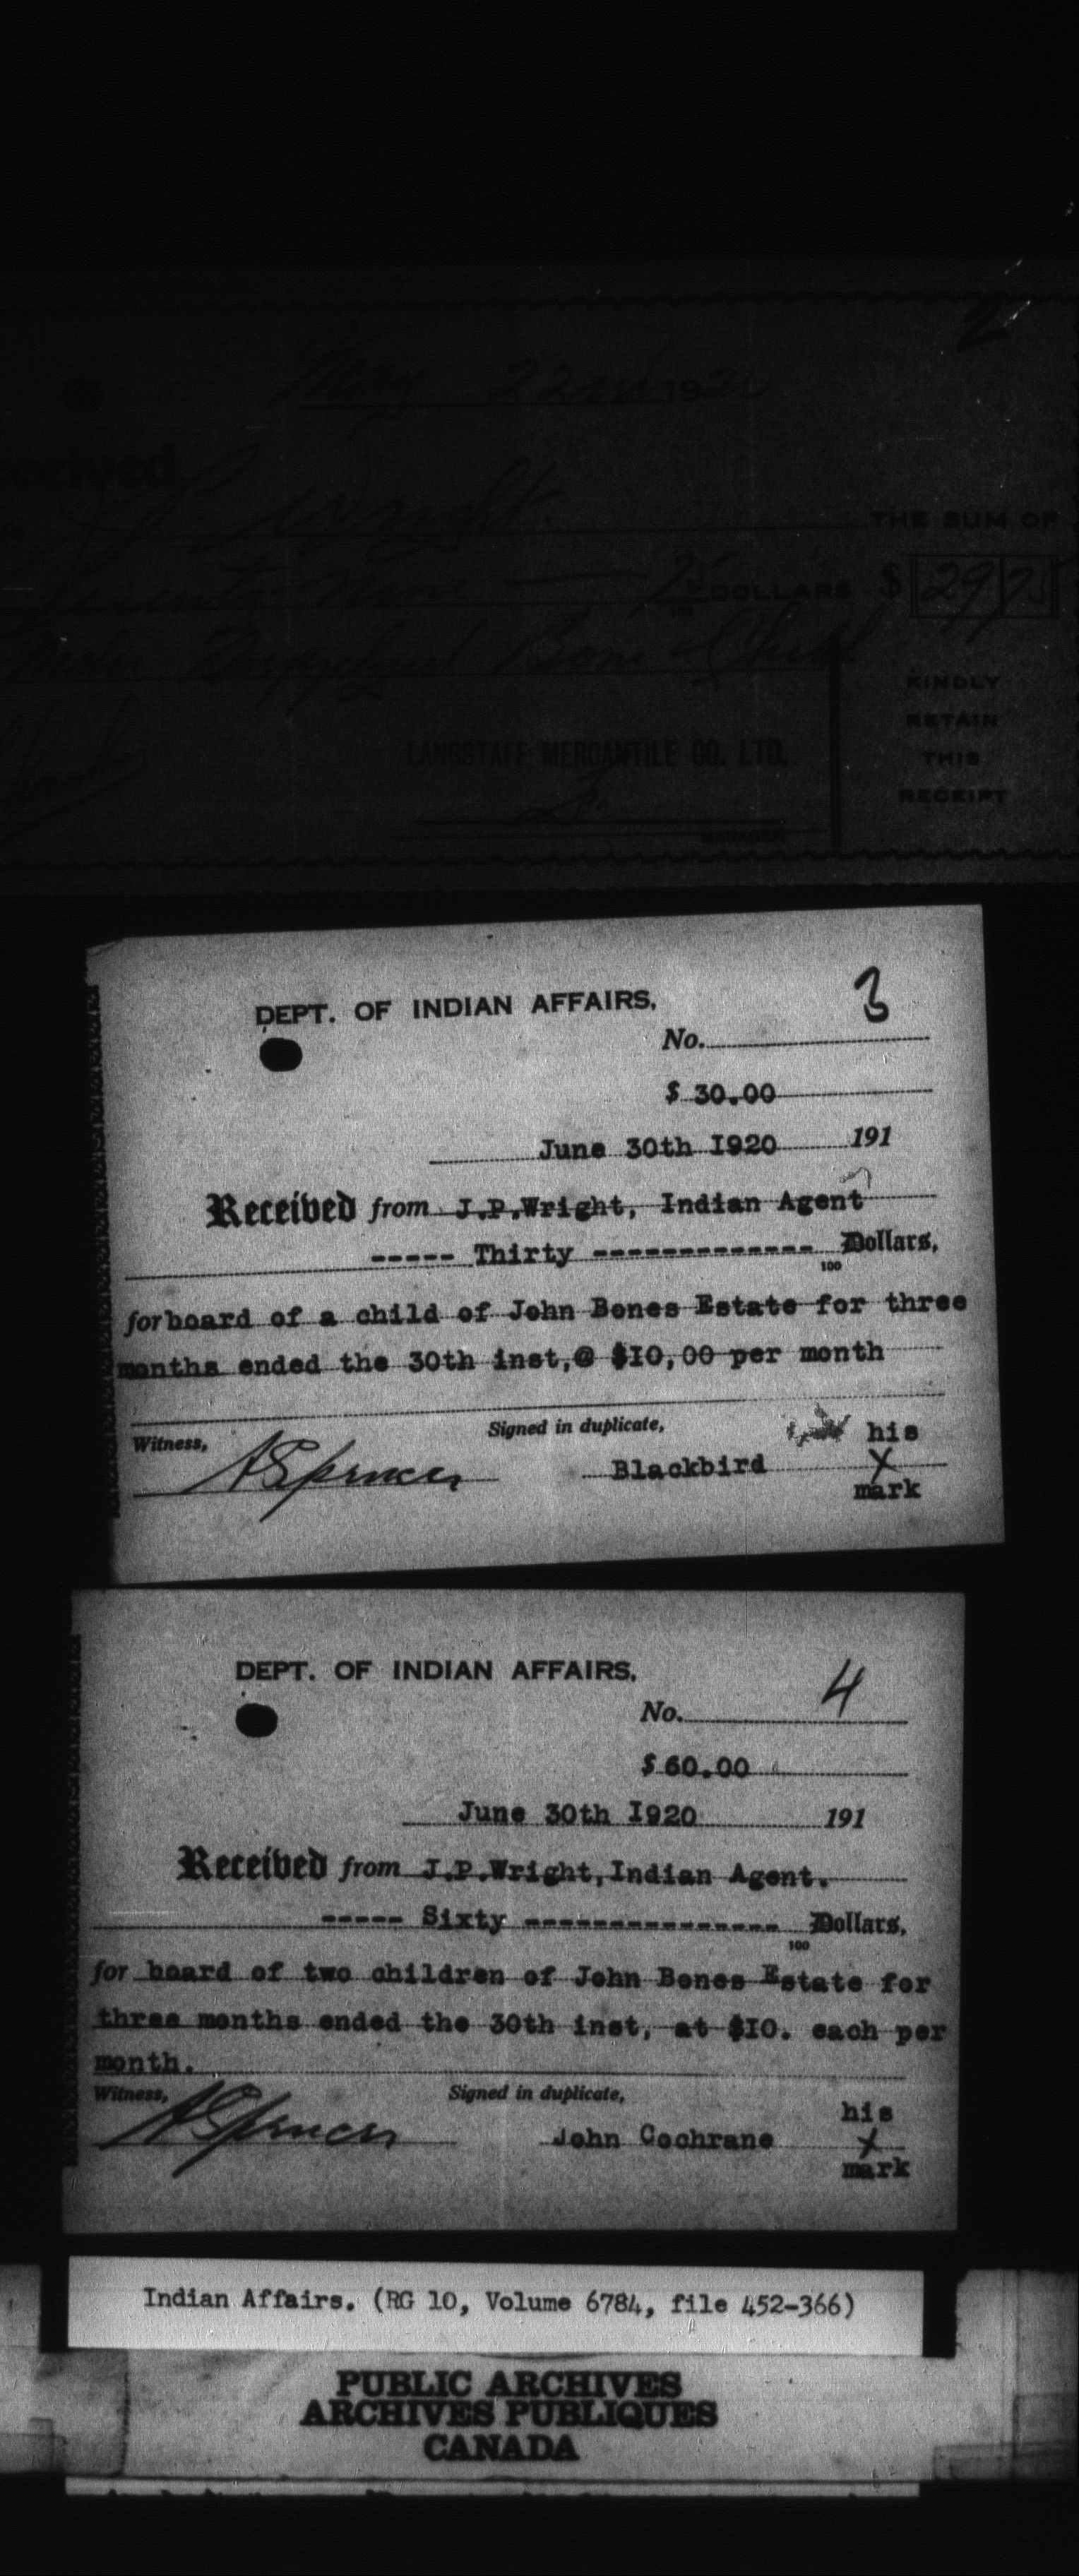 2
May 22nd 1920
Received
J. P. Wright. THE SUM OF
Seventy-nine 75 DOLLARS $ 29 75
Bone Child
KINDLY
RETAIN
LANGSTAFF MERCANTILE CO. LTD.
THIS
RECEIPT
MANAGER
DEPT. OF INDIAN AFFAIRS.
3
No.
$ 30.00
June 30th I920 191
Received from J.P.Wright, Indian Agent
----- Thirty ------------- Dollars,
100
for board of a child of John Bones Estate for three
months ended the 30th inst,@ $IO,00 per month
Witness, Signed in duplicate,
his
A Spencer Blackbird X
mark
DEPT. OF INDIAN AFFAIRS.
4
No.
$ 60.00
June 30th I920 191
Received from J.P.Wright,Indian Agent.
----- Sixty --------------- Dollars,
100
for board of two children of John Bones Estate for
three months ended the 30th inst, at $IO. each per
month.
Witness, Signed in duplicate,
his
A Spencer John Cochrane X
mark
Indian Affairs. (RG 10, Volume 6784, file 452-366)
PUBLIC ARCHIVES
ARCHIVES PUBLIQUES
CANADA